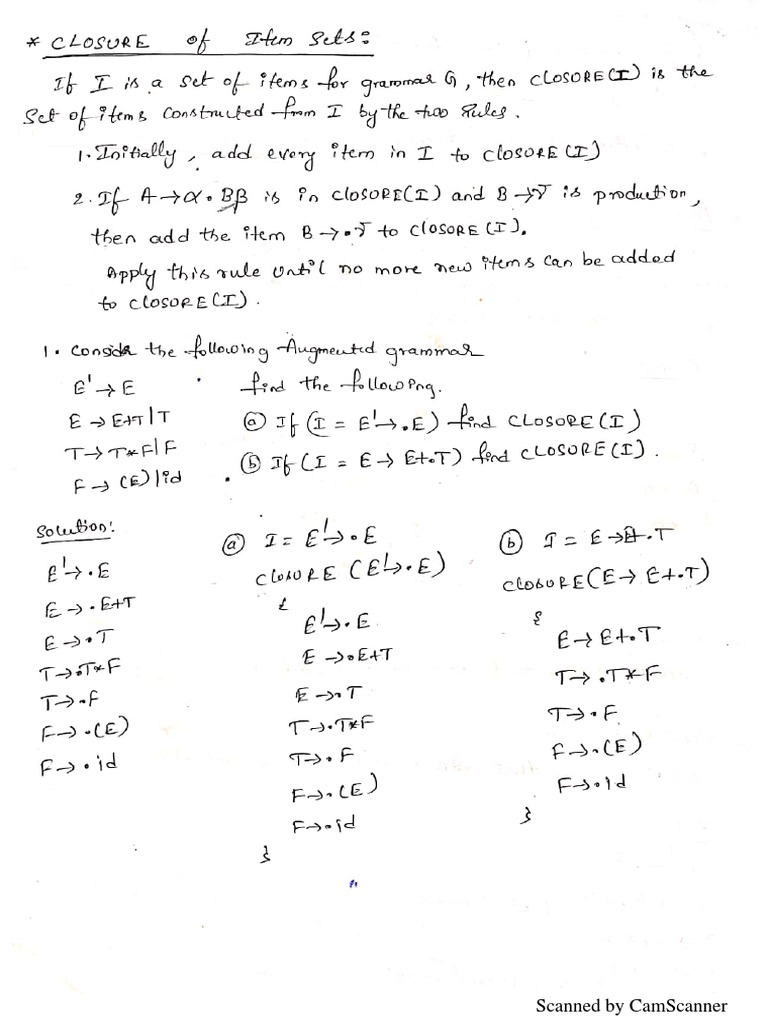 * CLOSURE of Item Sets:
If I is a set of items for grammar G, then CLOSURE(I) is the
Set of items constructed from I by the two rules.
1. Initially, add every item in I to CLOSURE(I)
2. If A→α.Bβ is in CLOSURE(I) and B→γ is production,
then add the item B→.γ to CLOSURE(I).
Apply this rule until no more new items can be added
to CLOSURE(I).
1. Consider the following Augmented grammar
E'→E find the following.
E→E+T|T (a) If (I = E'→.E) find CLOSURE(I)
T→T*F|F (b) If (I = E→E+.T) find CLOSURE(I).
F→(E)|id
Solution:
E'→.E
E→.E+T
E→.T
T→.T*F
T→.F
F→.(E)
F→.id
(a) I = E'→.E
CLOSURE (E'→.E)
{
E'→.E
E→.E+T
E→.T
T→.T*F
T→.F
F→.(E)
F→.id
}
(b) I = E→E+.T
CLOSURE(E→E+.T)
{
E→E+.T
T→.T*F
T→.F
F→.(E)
F→.id
}
Scanned by CamScanner